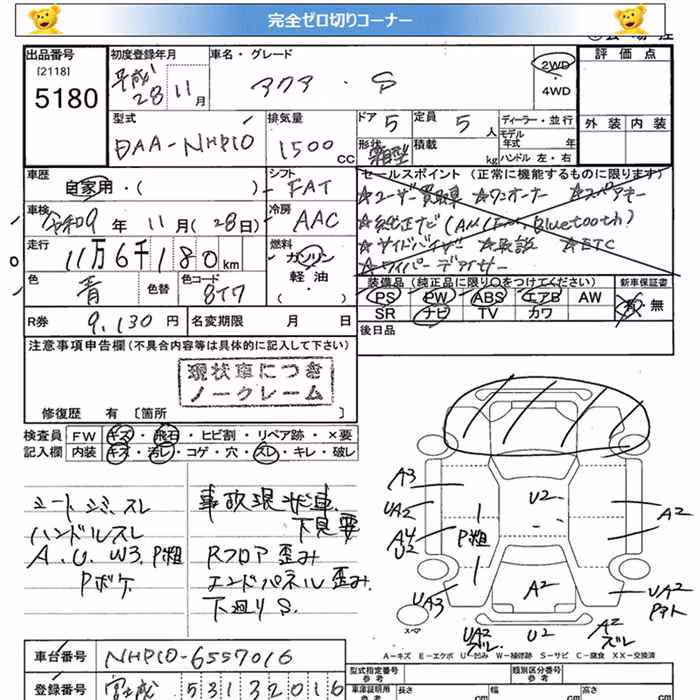 完全ゼロ切りコーナー
出品番号 初度登録年月 車名・グレード 評価点
[2118] 平成 アクア・S 2WD
5180 28年 11月 4WD
型式 排気量 ドア 5 定員 5人 ディーラー・並行
DAA-NHP10 1500cc 形状 箱型 積載 kg モデル年式 年
ハンドル 左・右 外装 内装
車歴 シフト セールスポイント (正常に機能するものに限ります)
自家用・( ) FAT ☆ユーザー買取車 ☆ワンオーナー ☆スペアキー
車検 冷房 ☆純正ナビ(AM/Fm, Bluetooth)
令和9年 11月(28日) AAC ☆サイドバイザー ☆取説 ☆ETC
走行 燃料 ☆ワイパーデアイサー
11万6千180km ガソリン
色 色替 色コード 軽油 装備品(純正品に限り○をつけてください) 新車保証書
青 8T7 (・) PS PW ABS エアB AW 有・無
SR ナビ TV カワ
R券 9,130円 名変期限 月 日 後日品
注意事項申告欄(不具合内容等は具体的に記入して下さい)
現状車につき
ノークレーム
修復歴 有 [箇所
検査員 FW キズ・飛石・ヒビ割・リペア跡・×要
記入欄 内装 キズ・汚レ・コゲ・穴・スレ・キレ・破レ
シートシミ、スレ 事故現状車、
ハンドルスレ 下見要
A.U.W3.P粗 Rフロア歪み
Pボケ エンドパネル歪み
下廻りS.
A3
UA2 U2 A2
A4 P粗
U2
UA3 A2 UA2
Pアト
スペア UA2 U2 A2
ズレ ズレ
A-キズ E-エクボ U-凹み W-補修跡 S-サビ C-腐食 XX-交換済
車台番号 NHP10-6557016
登録番号 宮城 531 3 2016
型式指定番号 類別区分番号
参考 参考
車庫証明用 長さ 幅 高さ
参考 cm cm cm